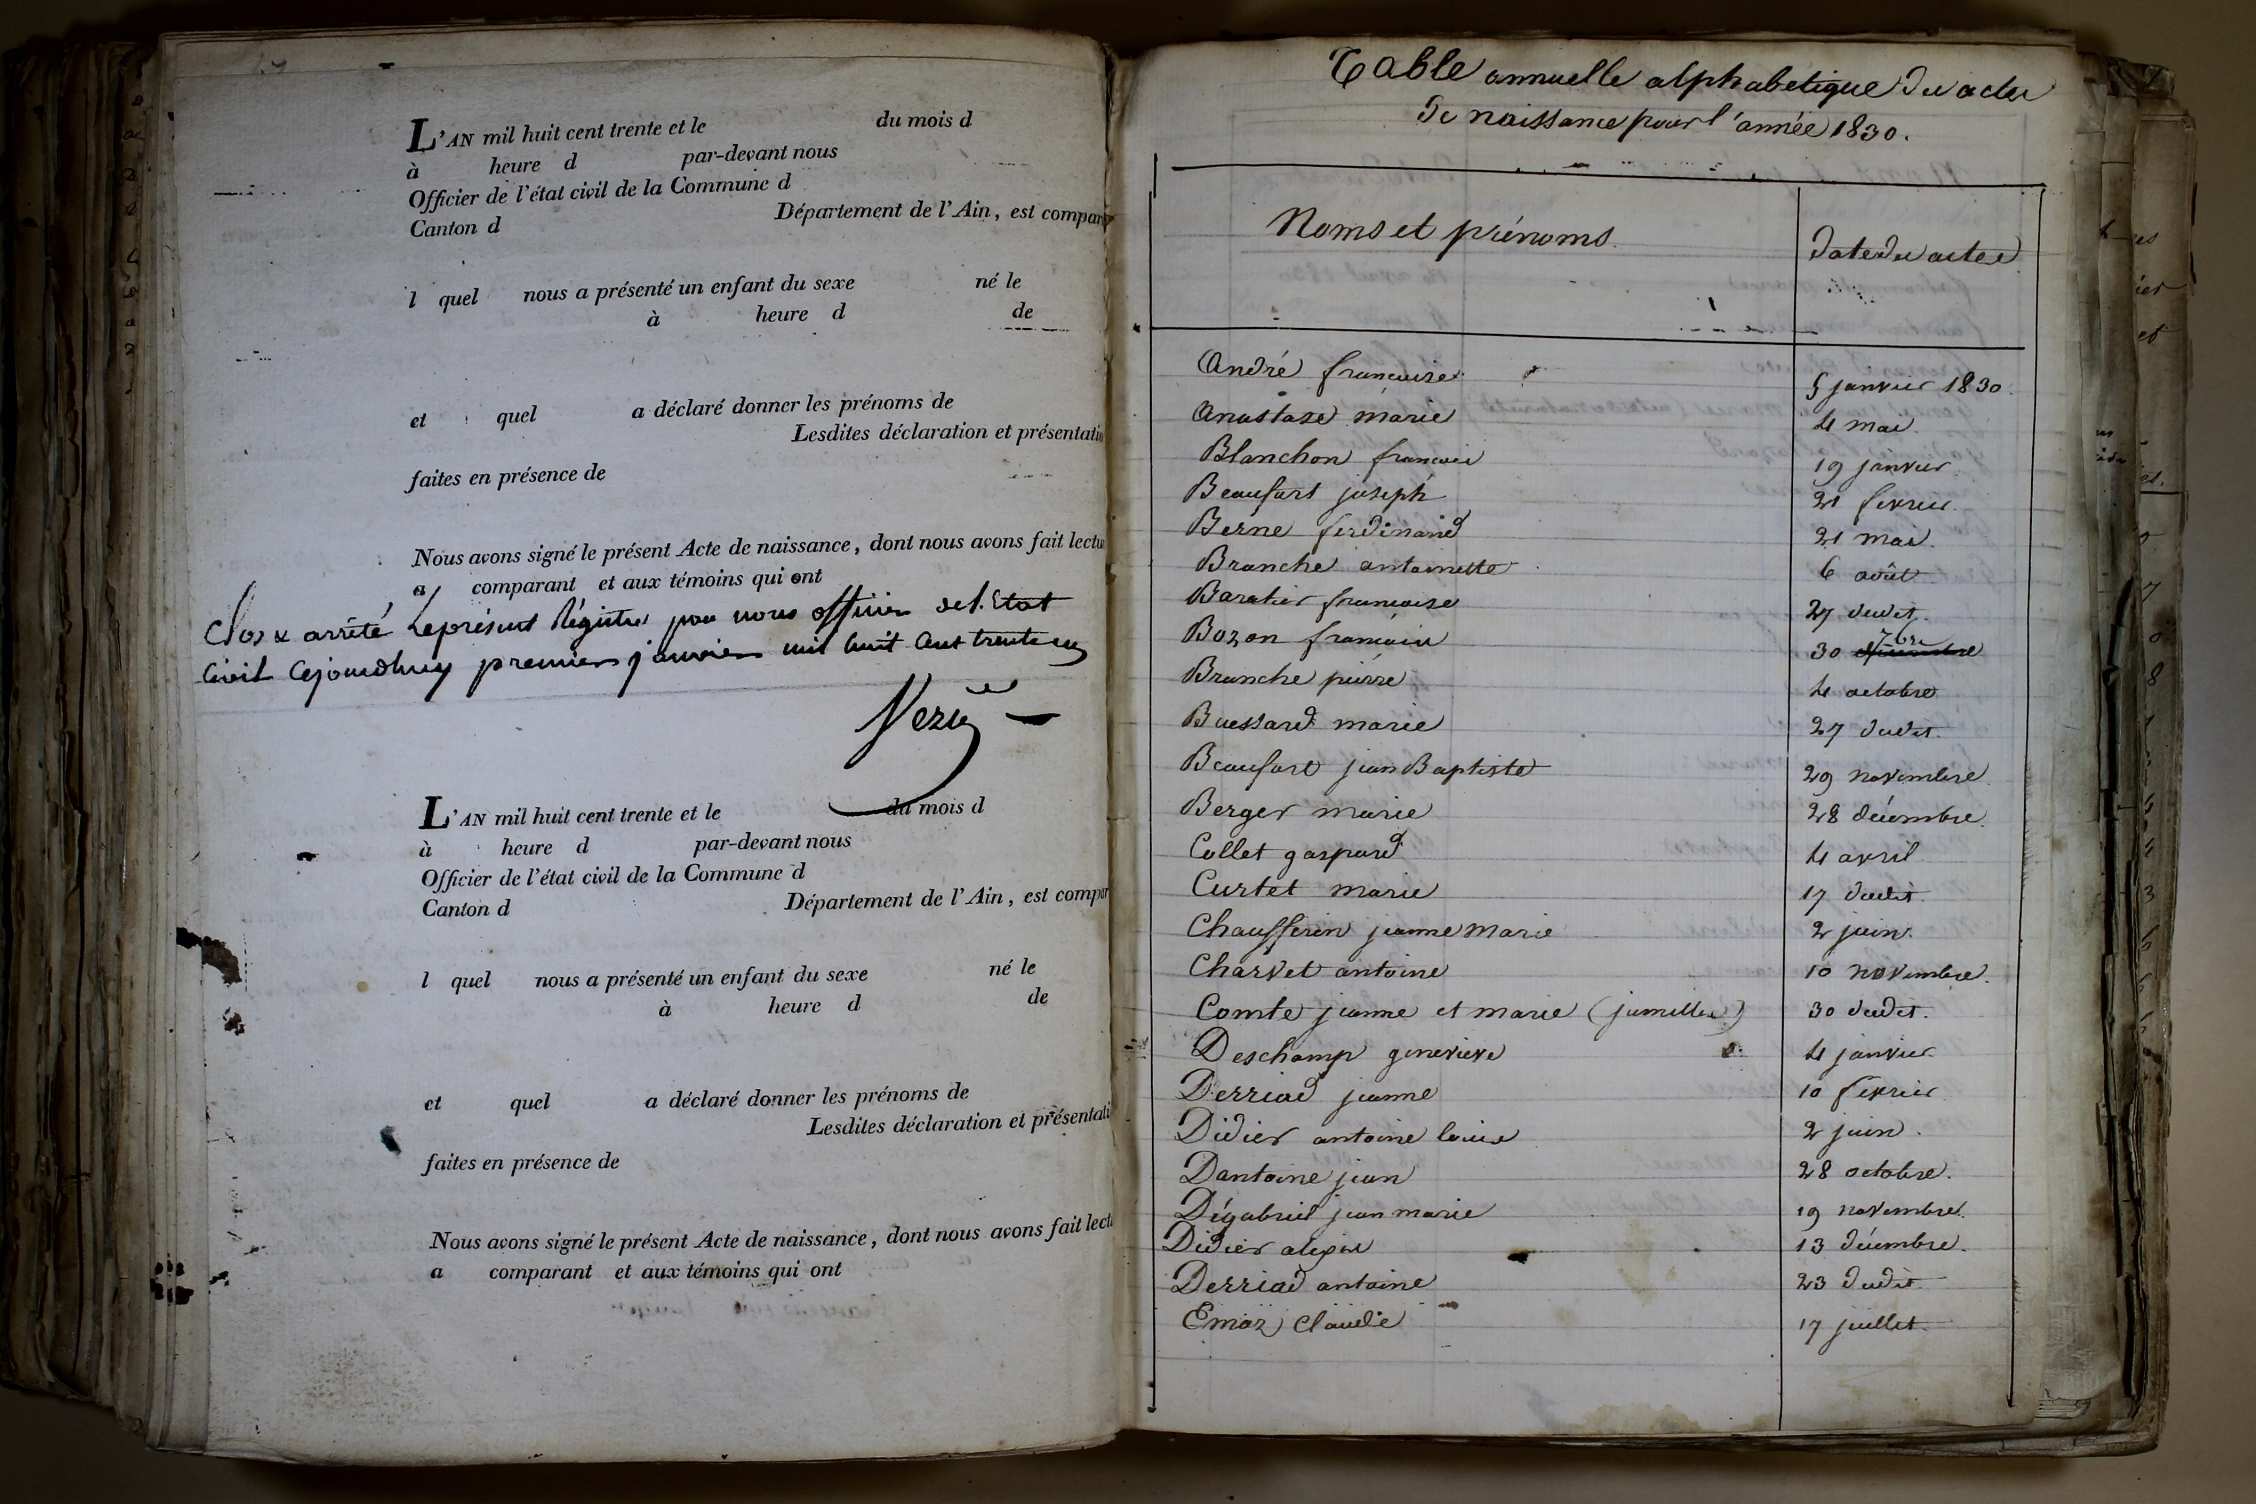 L'AN mil huit cent trente et le du mois d
à heure d par-devant nous
Officier de l'état civil de la Commune d
Canton d Département de l'Ain, est compar
l quel nous a présenté un enfant du sexe né le
à heure d de
et quel a déclaré donner les prénoms de
Lesdites déclaration et présentatio
faites en présence de
Nous avons signé le présent Acte de naissance, dont nous avons fait lectu
a comparant et aux témoins qui ont
Clos & arrêté le présent Régistre par nous officier de l'Etat
Civil Cejourdhuy premier janvier mil huit Cent trente un
L'AN mil huit cent trente et le du mois d
à heure d par-devant nous
Officier de l'état civil de la Commune d
Canton d Département de l'Ain, est compar
l quel nous a présenté un enfant du sexe né le
à heure d de
et quel a déclaré donner les prénoms de
Lesdites déclaration et présentati
faites en présence de
Nous avons signé le présent Acte de naissance, dont nous avons fait lectu
a comparant et aux témoins qui ont
Table annuelle alphabetique des actes
de naissance pour l'année 1830.
Noms et prénoms. date des actes
André francoise 5 janvier 1830
Anastase marie 4 mai
Blanchon francois 19 janvier
Beaufort joseph 21 fevrier
Berne ferdinand 21 mai.
Branche antoinette 6 août
Baratier francoise 27 dudit.
Bozon francois 30 7bre
Branche pierre 4 octobre
Buessard marie 27 dudit.
Beaufort jean Baptiste 29 novembre
Berger marie 28 décembre.
Collet gaspard 4 avril
Curtet marie 17 dudit.
Chaufferin jeanne Marie 2 juin.
Charvet antoine 10 novembre.
Comte jeanne et marie (jumelles) 30 dudit.
Deschamp genevieve 4 janvier
Derriad jeanne 10 fevrier
Didier antoine louis 2 juin.
Dantoine jean 28 octobre.
Dégabriel jean marie 19 novembre.
Didier alexis 13 décembre.
Derriad antoine 23 dudit
Emoz Claude 17 juillet.